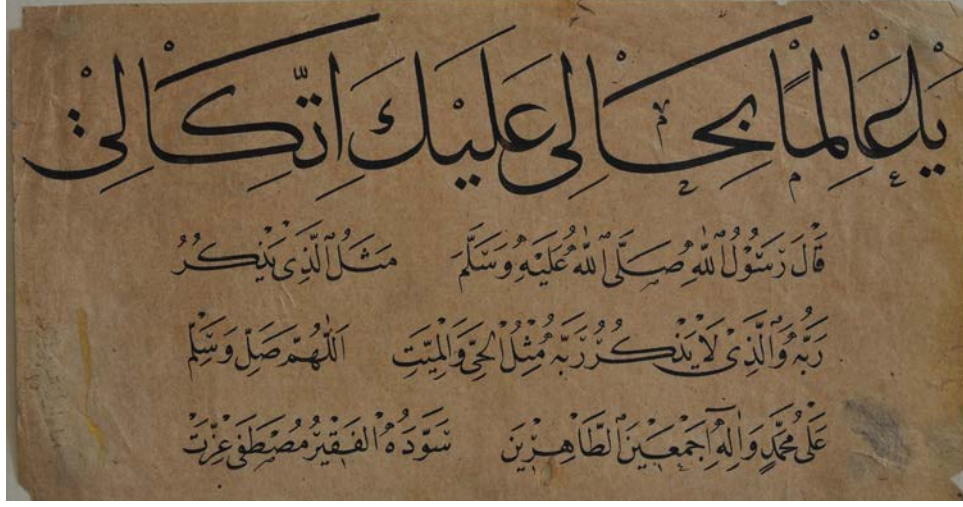 يَا عَالِمًا بِحَالِي عَلَيْكَ اتِّكَالِي
قَالَ رَسُولُ اللّٰهِ صَلَّى اللّٰهُ عَلَيْهِ وَسَلَّمَ مَثَلُ الَّذِي يَذْكُرُ
رَبَّهُ وَالَّذِي لَا يَذْكُرُ رَبَّهُ مَثَلُ الْحَيِّ وَالْمَيِّتِ اَللّٰهُمَّ صَلِّ وَسَلِّمْ
عَلَى مُحَمَّدٍ وَاٰلِهِ اَجْمَعِينَ الطَّاهِرِينَ سَوَّدَهُ الْفَقِيرُ مُصْطَفَى عِزَّتْ